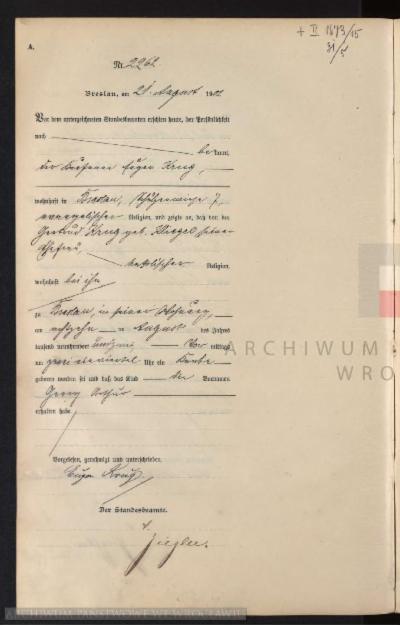 + II 1673/15
31/5
A.
Nr. 2262
Breslau, am 21. August 1902
Vor dem unterzeichneten Standesbeamten erschien heute, der Persönlichkeit
nach be kannt,
der Eugen Krug,
wohnhaft in Breslau, 7,
evangelischer Religion, und zeigte an, daß von der
Gertrud Krug geb. seiner
Ehefrau,
katholischer Religion,
wohnhaft bei ihm
zu Breslau, in seiner Wohnung,
am achtzehn ten August des Jahres
tausend neunhundert zwei Vor mittags
um Uhr ein Knabe
geboren worden sei und daß das Kind die Vornamen
Georg Arthur
erhalten habe.
Vorgelesen, genehmigt und unterschrieben.
Eugen Krug
Der Standesbeamte.
Ziegler.
ARCHIWUM
WRO
ARCHIWUM PAŃSTWOWE WE WROCŁAWIU